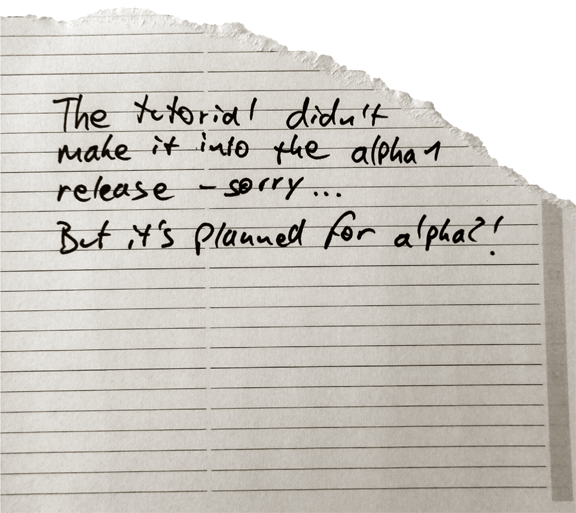 The tutorial didn't
make it into the alpha1
release – sorry...
But it's planned for alpha2!